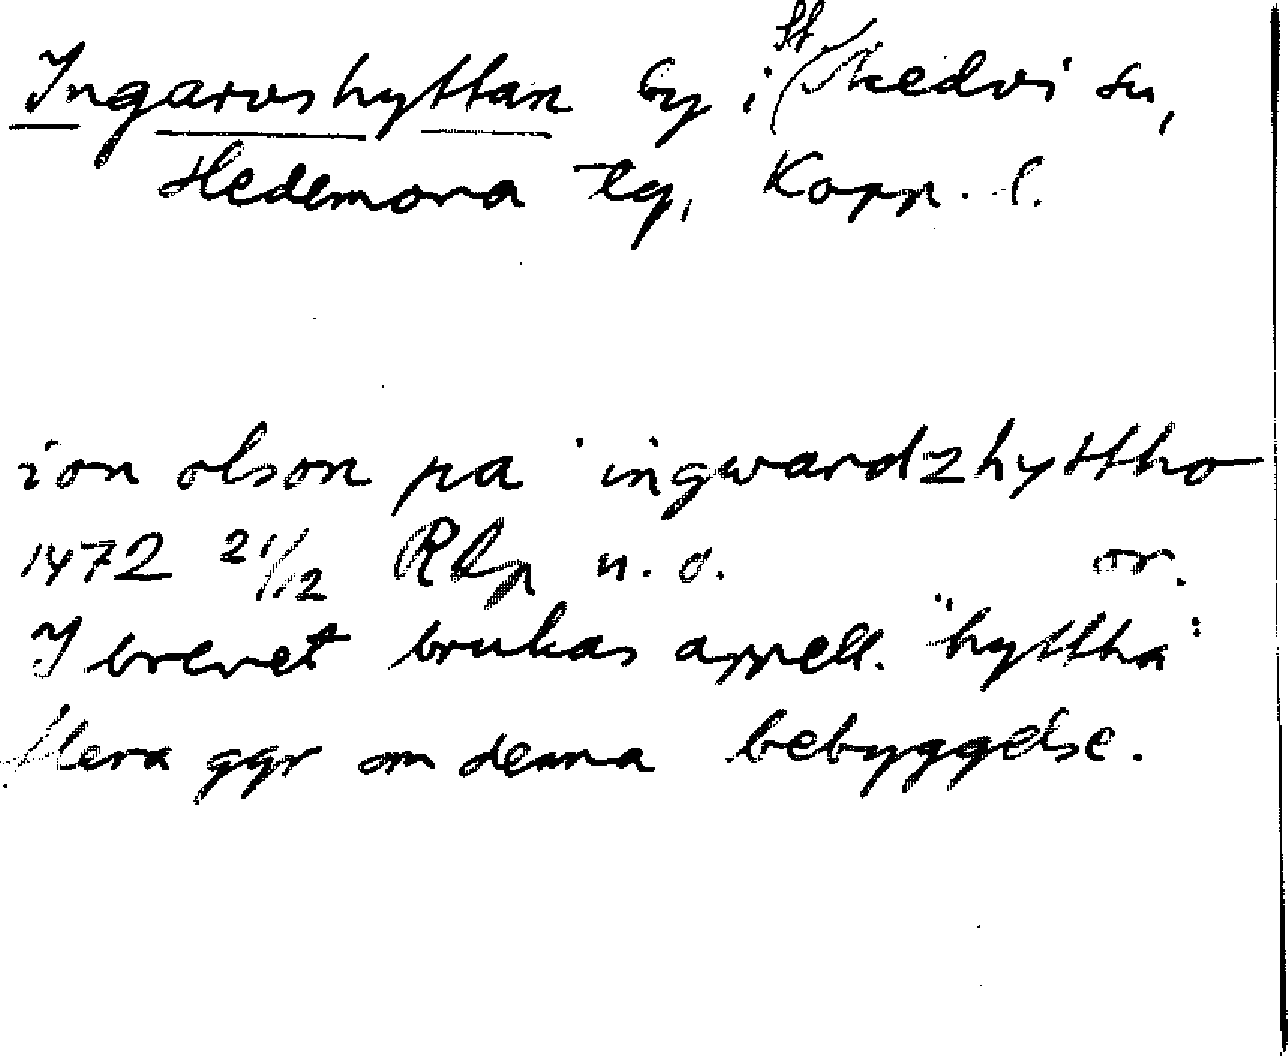 Ingarvshyttan by i St Skedvi sn,
Hedemora tg, Kopp. l.
ion olson pa ingwardzhyttho
1472 21/12 RAp n. o. or.
I brevet brukas appell. "hyttha"
flera ggr om denna bebyggelse.